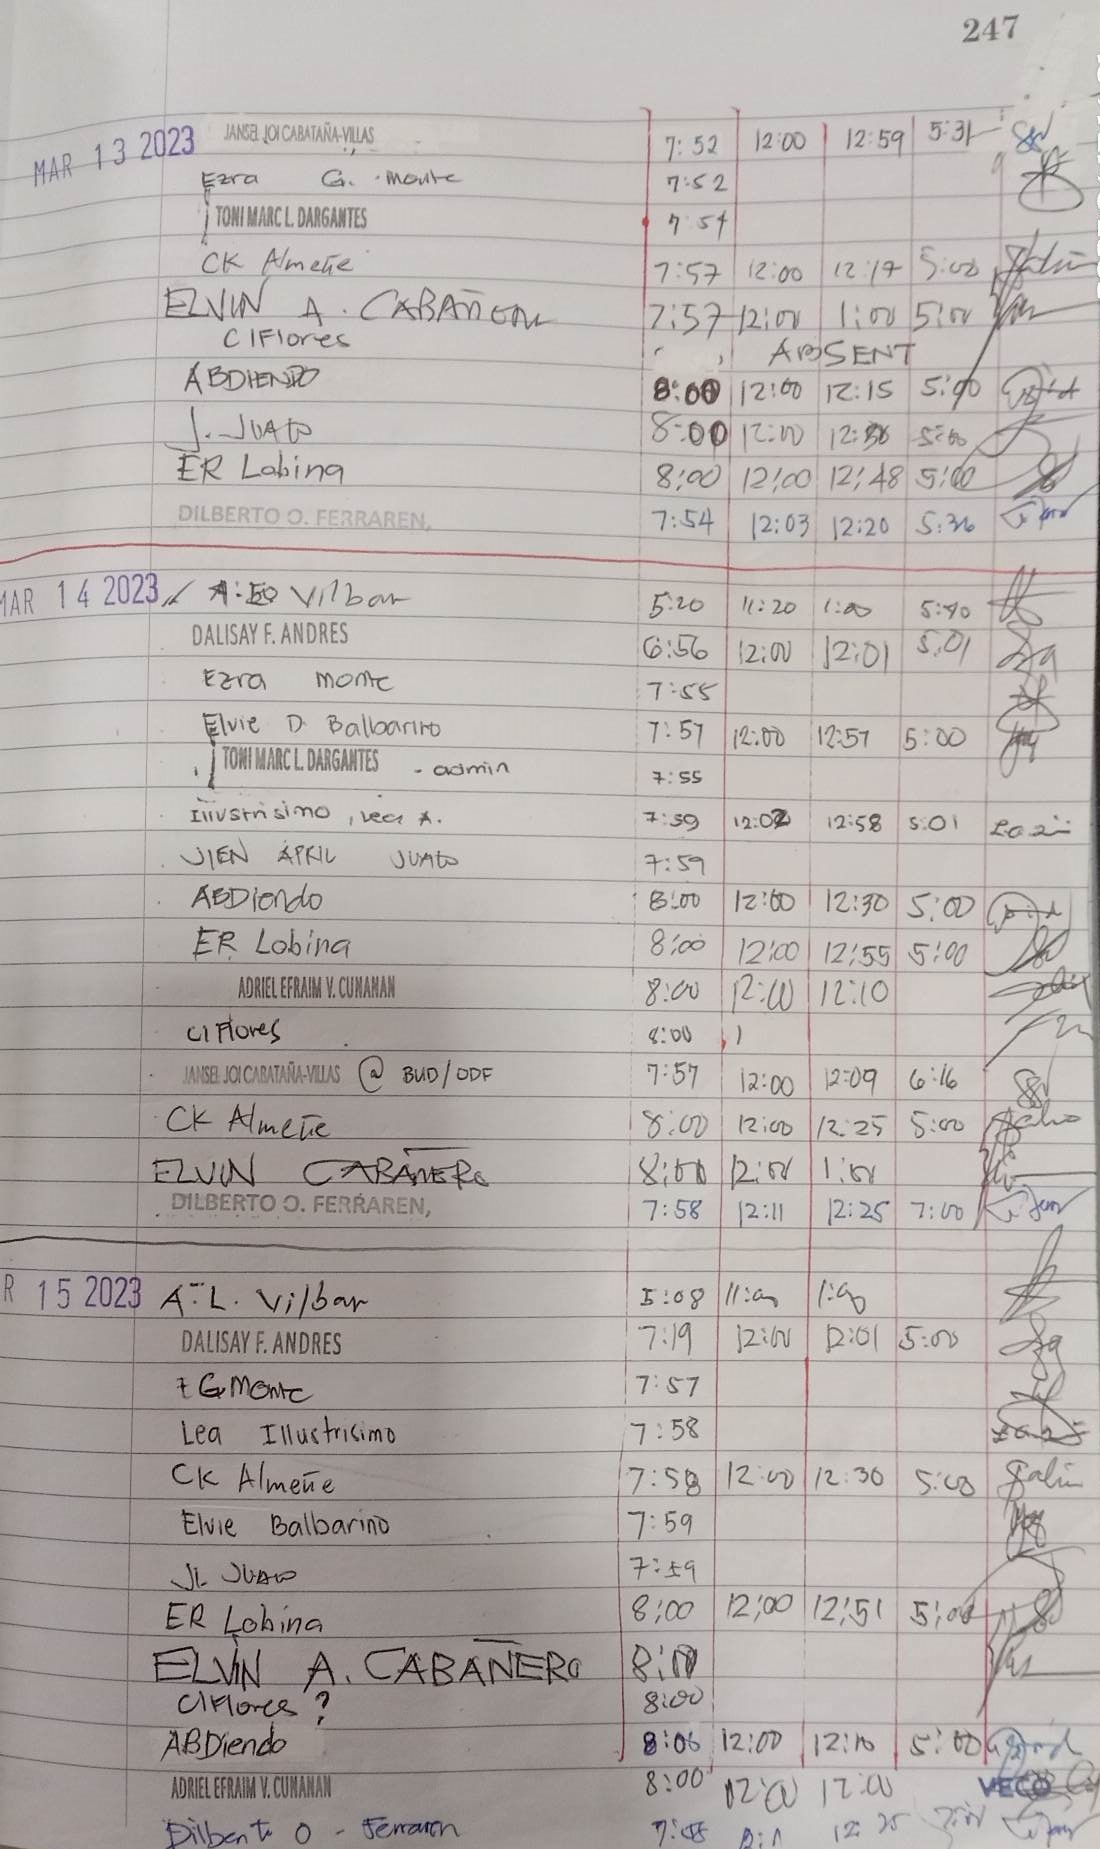 247
MAR 13 2023 JANSEL JOI CABATAÑA-VILLAS 7:52 12:00 12:59 5:31
Ezra G. Monte 7:52
TONI MARC L. DARGANTES 7:54
CK Almeñe 7:57 12:00 12:17 5:00
ELVIN A. CABAÑERO 7:57 12:00 1:00 5:00
CIFlores ABSENT
ABDIENDO 8:00 12:00 12:15 5:00
J. JUATO 8:00 12:00 12:36 5:00
ER Lobina 8:00 12:00 12:48 5:00
DILBERTO O. FERRAREN, 7:54 12:03 12:20 5:36
MAR 14 2023 Vilbar 5:20 11:20 1:00 5:40
DALISAY F. ANDRES 6:56 12:00 12:01 5:01
Ezra Monte 7:55
Elvie D. Balbarino 7:57 12:00 12:57 5:00
TONI MARC L. DARGANTES - admin 7:55
Illustrisimo, Lea A. 7:59 12:02 12:58 5:01
JIEN APRIL JUATO 7:59
ABDiendo 8:00 12:00 12:30 5:00
ER Lobina 8:00 12:00 12:55 5:00
ADRIEL EFRAIM V. CUNANAN 8:00 12:00 12:10
CIFlores 8:00
JANSEL JOI CABATAÑA-VILLAS @ BUD/ODF 7:57 12:00 12:09 6:16
CK Almeñe 8:00 12:00 12:25 5:00
ELVIN CABAÑERO 8:00 12:00 1:00
DILBERTO O. FERRAREN, 7:58 12:11 12:25 7:00
R 15 2023 A.L. Vilbar 5:08 11:00 1:00
DALISAY F. ANDRES 7:19 12:00 12:01 5:00
G Monte 7:57
Lea Illustrisimo 7:58
CK Almeñe 7:58 12:00 12:30 5:00
Elvie Balbarino 7:59
JUATO 7:59
ER Lobina 8:00 12:00 12:51 5:00
ELVIN A. CABAÑERO 8:00
CIFlores ? 8:00
ABDiendo 8:06 12:00 12:10 5:00
ADRIEL EFRAIM V. CUNANAN 8:00 12:00 12:00 VECO
Dilberto O. Ferraren 12:25